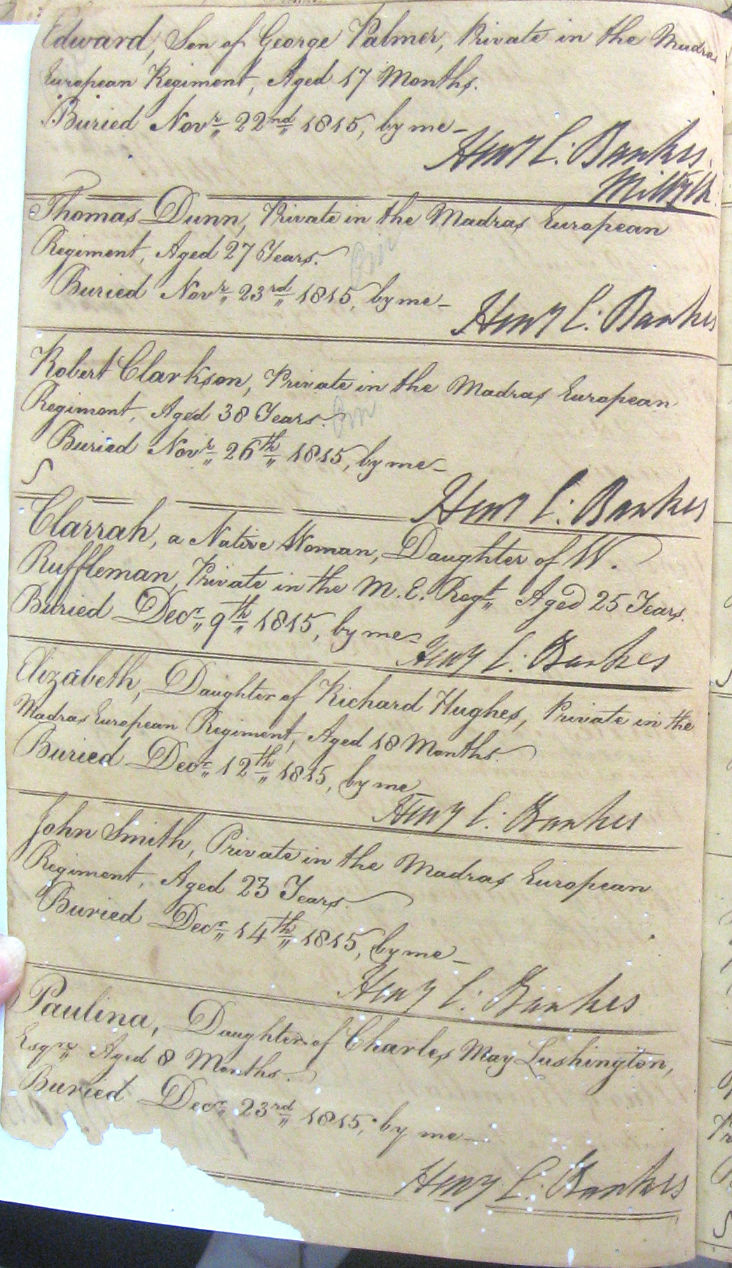 Edward, Son of George Palmer, Private in the Madras
European Regiment, Aged 17 Months.
Buried Novr. 22nd 1815, by me
Heny C. Bankes.
Thomas Dunn, Private in the Madras European
Regiment, Aged 27 Years.
Buried Novr. 23rd 1815, by me
Heny C. Bankes
Robert Clarkson, Private in the Madras European
Regiment, Aged 38 Years.
Buried Novr. 26th 1815, by me
Heny C. Bankes
Clarrah, a Native Woman, Daughter of W.
Ruffleman, Private in the M. E. Regt. Aged 25 Years.
Buried Decr. 9th 1815, by me
Heny C. Bankes
Elizabeth, Daughter of Richard Hughes, Private in the
Madras European Regiment, Aged 18 Months.
Buried Decr. 12th 1815, by me
Heny C. Bankes
John Smith, Private in the Madras European
Regiment, Aged 23 Years.
Buried Decr. 14th 1815, by me
Heny C. Bankes
Paulina, Daughter of Charles May Lushington,
Esqre. Aged 8 Months.
Buried Decr. 23rd 1815, by me
Heny C. Bankes